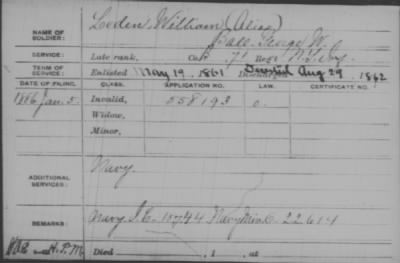 Loden William (Alias)
NAME OF SOLDIER:
Ball George W.
SERVICE: Late rank, Co. Regt
TERM OF SERVICE: Enlisted May 19, 1861 Deserted Aug 29, 1862
DATE OF FILING. CLASS. APPLICATION NO. LAW. CERTIFICATE NO.
1886 Jan. 5. Invalid, 558193
Widow,
Minor,
ADDITIONAL SERVICES: Navy.
REMARKS: Navy I.C. 15744 Navy 22614
Died , 1 , at